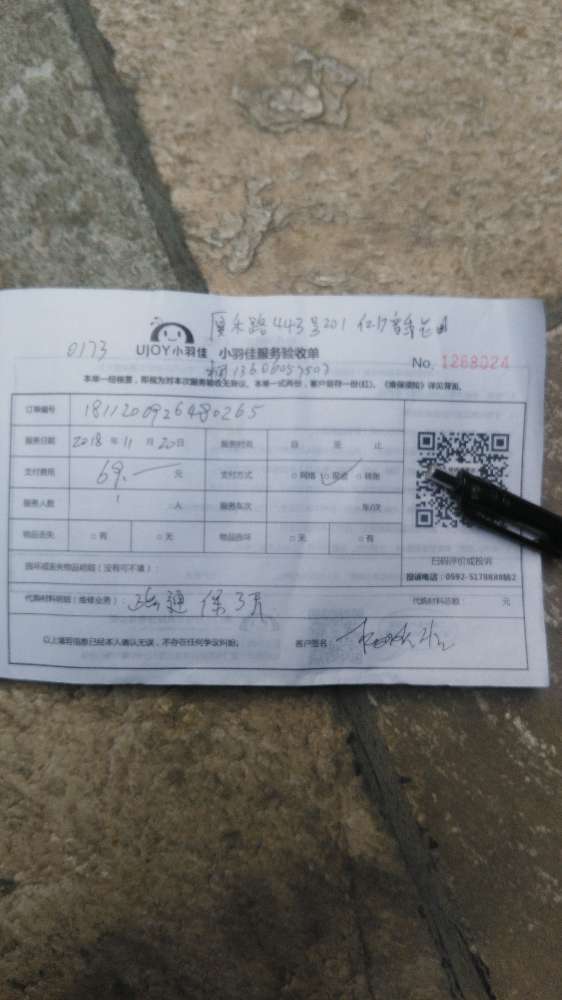 路443号201
0173 UJOY小羽佳 小羽佳服务验收单
13606057507
No. 1268024
本单一经核署，即视为对本次服务验收无异议。本单一式两份，客户留存一份(红)。《维保须知》详见背面。
订单编号 1811200926480265
服务日期 2018 年 11 月 20 日 服务时间 自 至 止
支付费用 69. 元 支付方式 □网络 □现金 □转账
服务人数 1 人 服务车次 车/次
物品丢失 □有 □无 物品损坏 □无 □有
扫码评价或投诉
损坏或丢失物品明细（没有可不填）：
投诉电话：0592-5178888转2
代购材料明细（维修业务）： 疏通保3月
代购材料总额 元
以上填写信息已经本人确认无误，不存在任何争议纠纷。 客户签名：